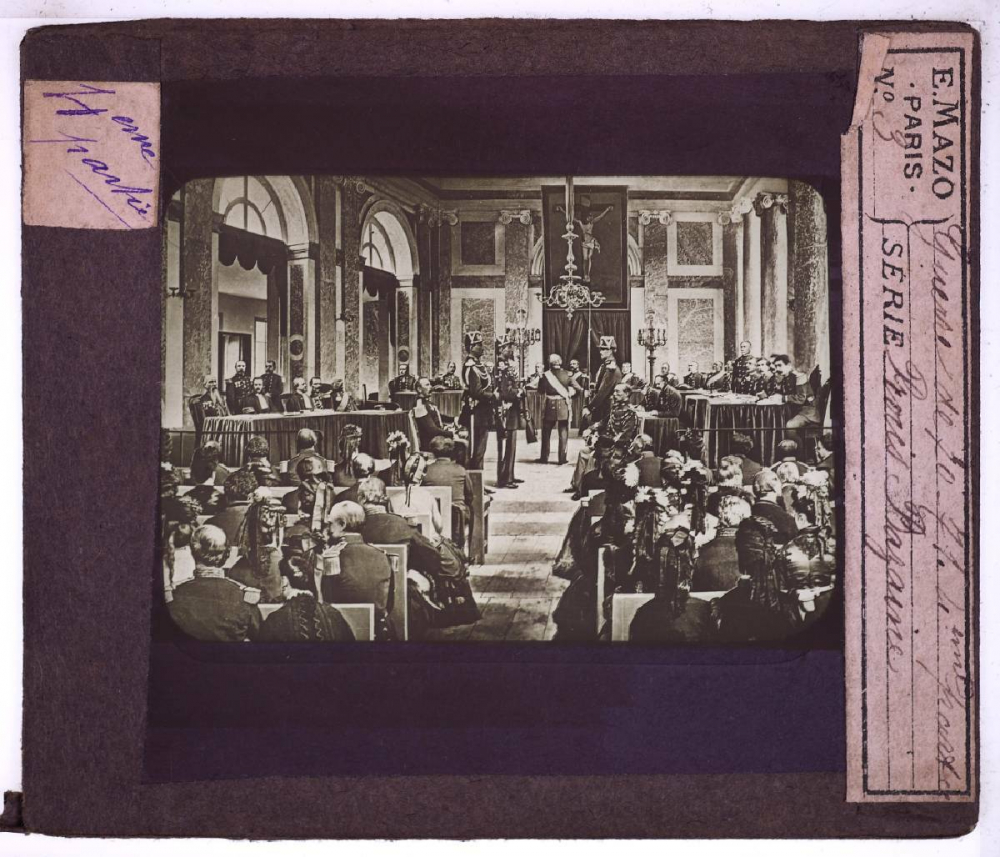 4eme
partie
E. MAZO
· PARIS ·
No 3
SERIE
Guerre de 70-71. 4eme partie
Procès Bazaine